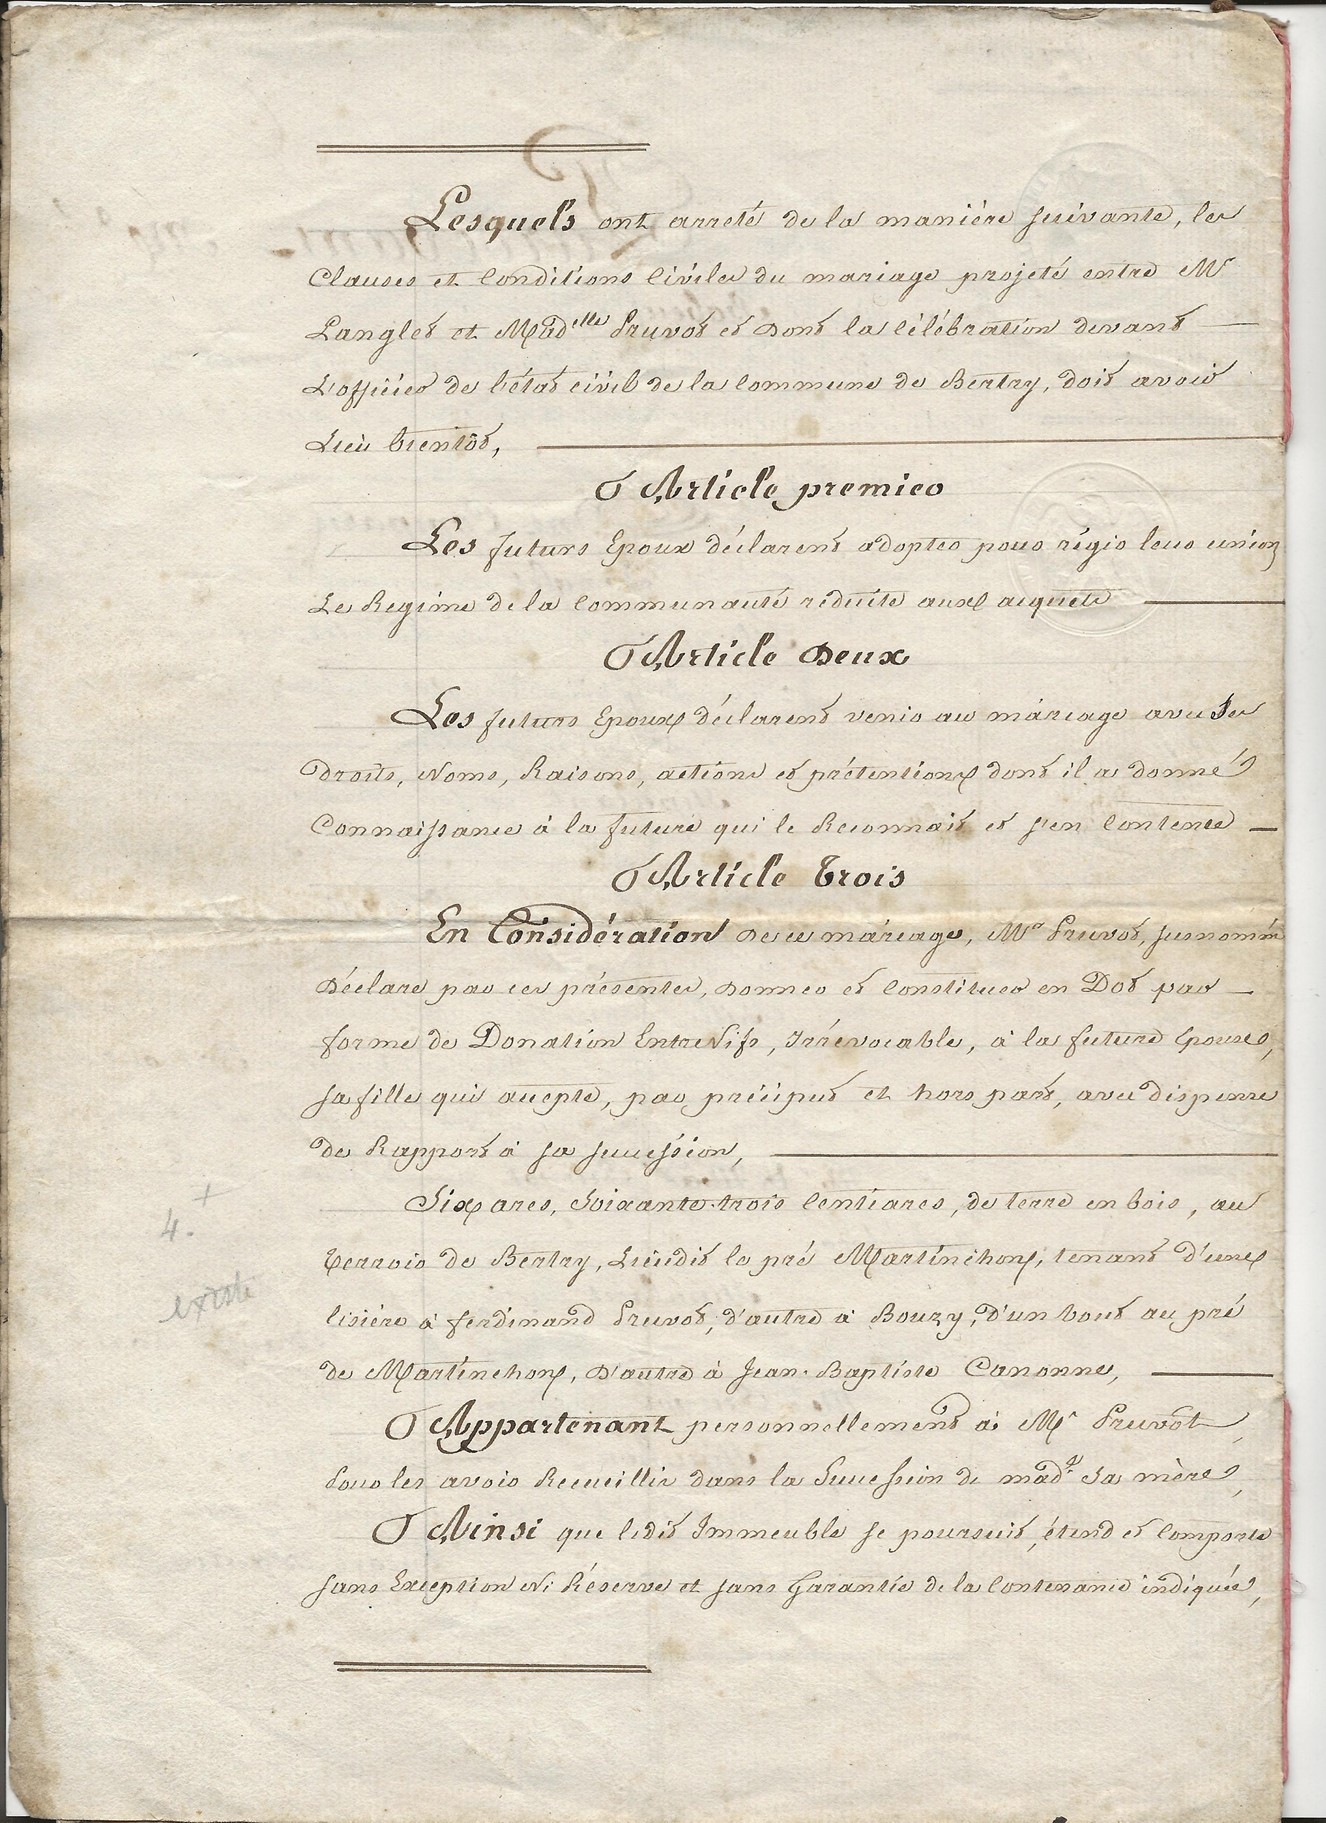 Lesquels ont arreté de la manière suivante, les
Clauses et Conditions Civiles du mariage projeté entre Mr
Langlet et Madelle Pruvot et dont la Célébration devant
L'officier de l'état civil de la Commune de Bertry, doit avoir
Lieu bientôt,
Article premier
Les futurs Epoux déclarent adopter pour régir leur union
Le Regime de la Communauté réduite aux acquets
Article Deux
Les futurs Epoux déclarent venir au mariage avec Ses
Droits, Noms, Raisons, actions et prétentions dont il a donné
Connaissance à la future qui le Reconnait et s'en Contente
Article Trois
En Considération de ce mariage, Mr Pruvot, susnommé
Déclare par ces présentes, Donner et Constituer en Dot par
forme de Donation Entre Vifs, Irrévocable, à la future Epouse,
sa fille qui accepte, par préciput et hors part, avec dispense
de Rapport à sa succession,
Six ares, Soixante-trois Centiares, de terre en bois, au
Terroir de Bertry, Lieudit le pré Martinchon, tenant d'une
lisière à ferdinand Pruvot, d'autre à Bouzy, d'un bout au pré
de Martinchon, D'autre à Jean-Baptiste Canonne,
4. +
existe
Appartenant personnellement à Mr Pruvot,
Pour les avoir Recueillir dans la Succession de made Sa mère,
Ainsi que ledit Immeuble se poursuit, étend et Comporte
sans Exception Ni Réserve et sans Garantie de la Contenance indiquée,